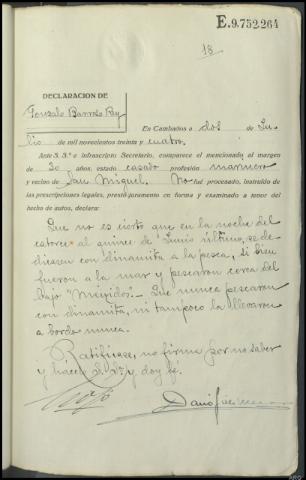 E.9.752.264
18
DECLARACION DE
Gonzalo Barreto Rey
En Cambados a dos de Ju-
lio de mil novecientos treinta y cuatro.
Ante S. S.ª e infrascripto Secretario, comparece el mencionado al margen
de 30 años, estado casado profesión marinero
y vecino de San Miguel. No fué procesado, instruido de
las prescripciones legales, prestó juramento en forma y examinado a tenor del
hecho de autos, declara:
Que no es cierto que en la noche del
catorce al quince de Junio último, se de-
dicasen con dinamita a la pesca, si bien
fueron a la mar y pescaron cerca del
bajo "Mexidos". Que nunca pescaron
con dinamita, ni tampoco la llevaron
a bordo nunca.
Ratifícase, no firma por no saber
y hácelo S. Sª. y doy fé.